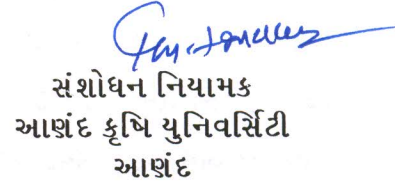 સંશોધન નિયામક
આણંદ કૃષિ યુનિવર્સિટી
આણંદ